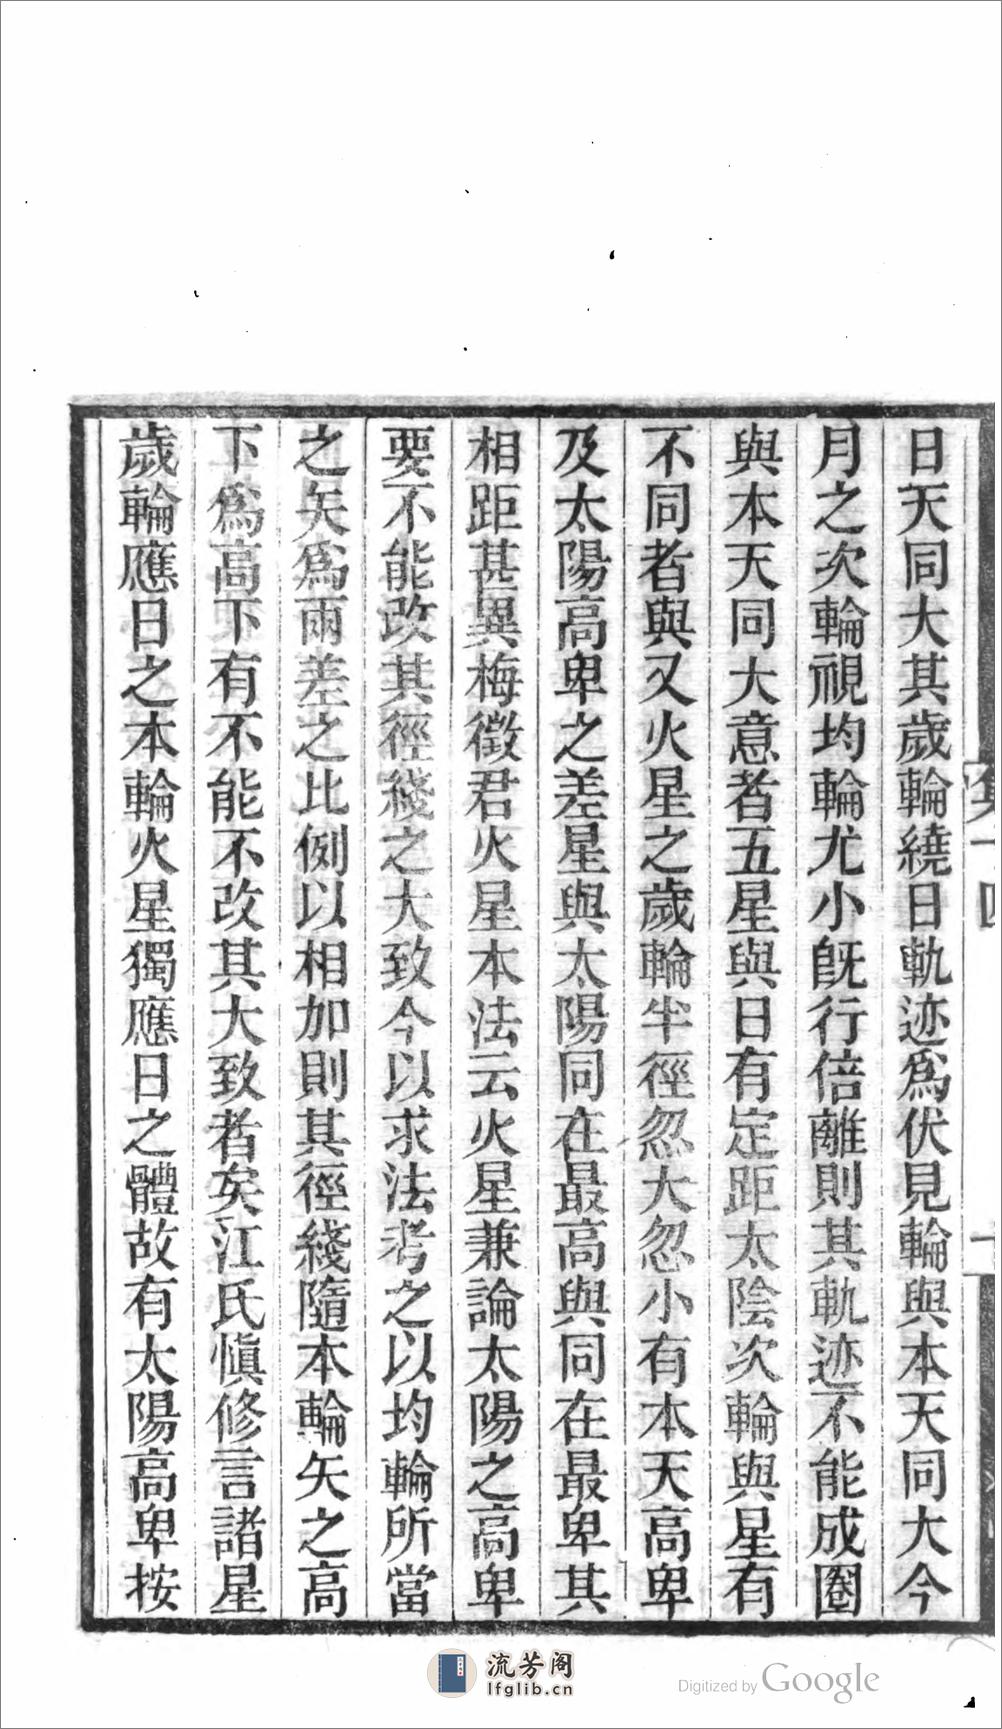 日天同大其歲輪繞日軌迹爲伏見輪與本天同大今
月之次輪視均輪尤小旣行倍離則其軌迹不能成圈
與本天同大意者五星與日有定距太陰次輪與星有
不同者與又火星之歲輪半徑忽大忽小有本天高卑
及太陽高卑之差星與太陽同在最高與同在最卑其
相距甚異梅徵君火星本法云火星兼論太陽之高卑
要不能改其徑綫之大致今以求法考之以均輪所當
之矢爲兩差之比例以相加則其徑綫隨本輪矢之高
下爲高下有不能不改其大致者矣江氏愼修言諸星
歲輪應日之本輪火星獨應日之體故有太陽高卑按
流芳阁
lfglib.cn
Digitized by Google